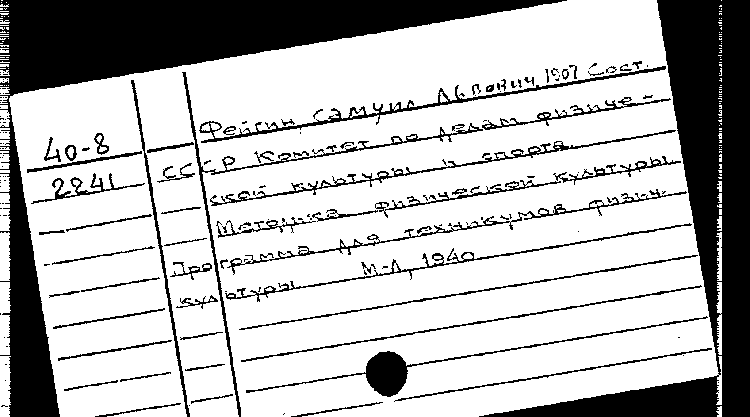 40-8
2241
Фейгин, Самуил Львович, 1907 Сост.
СССР Комитет по делам физиче-
ской культуры и спорта.
Методика физической культуры
Программа для техникумов физич.
культуры. М-Л, 1940